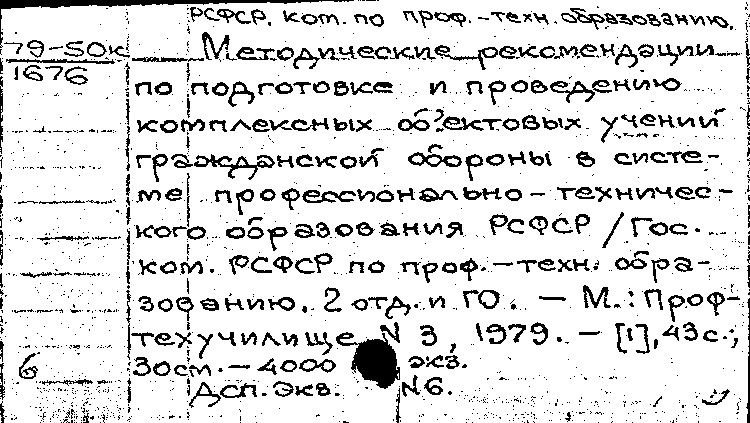 РСФСР. ком. по проф.-техн. образованию.
79-50к
1676
Методические рекомендации
по подготовке и проведению
комплексных объектовых учений
гражданской обороны в систе-
ме профессионально-техничес-
кого образования РСФСР / Гос.
ком. РСФСР по проф.-техн. обра-
зованию. 2 отд. и ГО. — М.: Проф-
техучилище N 3, 1979. — [1], 43 с.;
30 см. — 4000 экз.
6
ДСП. Экз. N6.